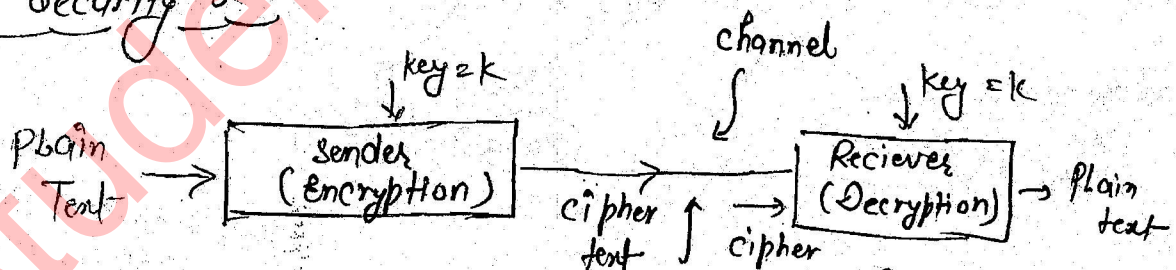 Security
channel
key = k
key = k
Plain
Text
Sender
(Encryption)
cipher
text
cipher
Reciever
(Decryption)
Plain
text